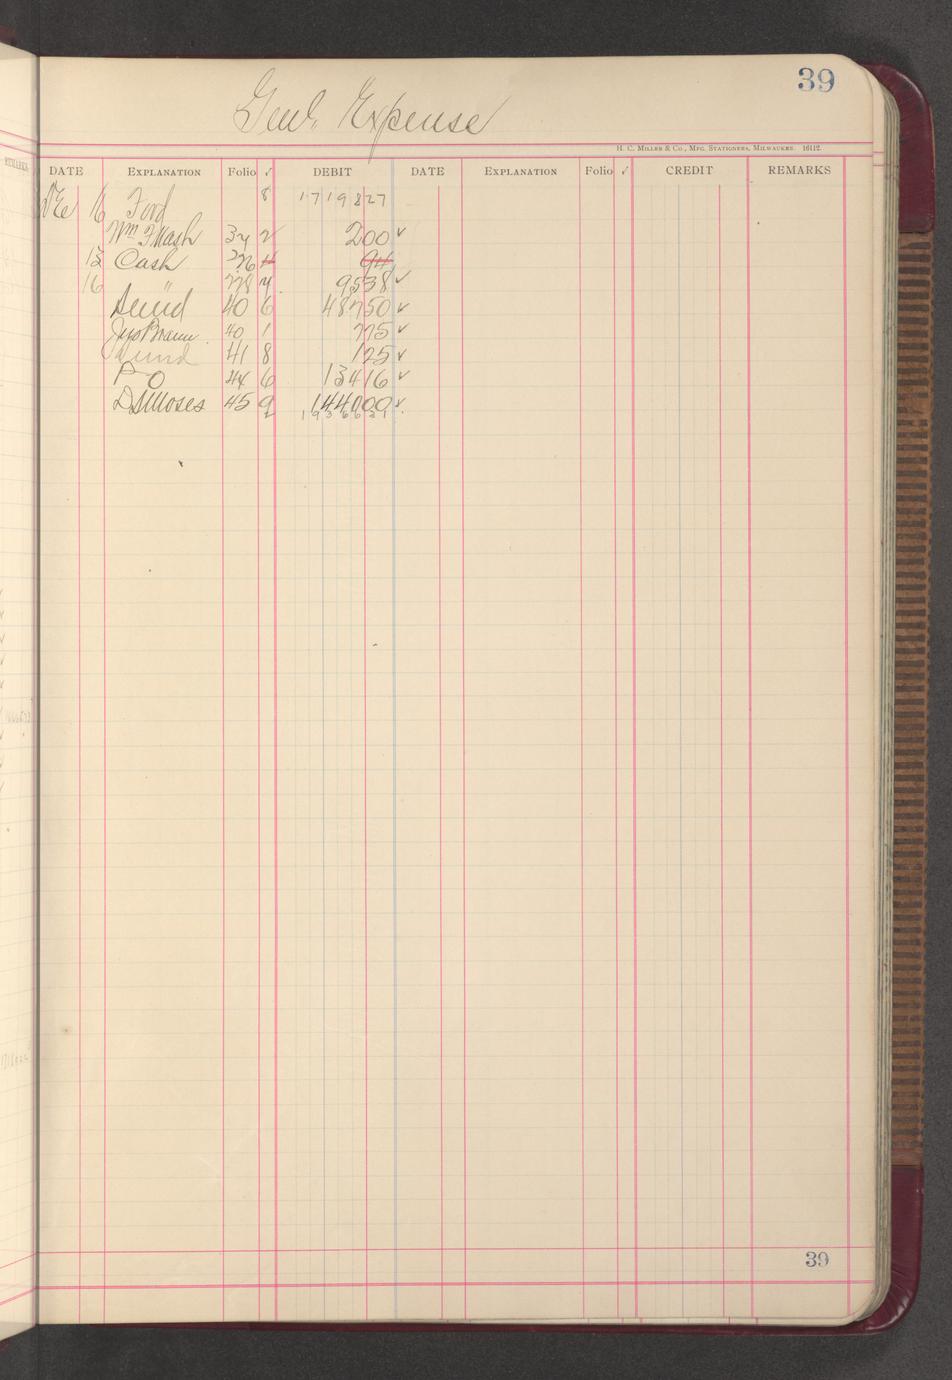 39
Genl. Expense
H. C. Miller & Co., Mfg. Stationers, Milwaukee. 16112.
DATE EXPLANATION Folio ✓ DEBIT DATE EXPLANATION Folio ✓ CREDIT REMARKS
REMARKS
16 Ford 8 1719827
Wm F Nash 34 2 200 ✓
13 Cash 226 4 94
16 228 4 9538 ✓
40 6 48750 ✓
Jno Braun 40 1 775 ✓
41 8 125 ✓
P O 44 6 13416 ✓
D S Moses 45 9 144000 ✓
1936631
39